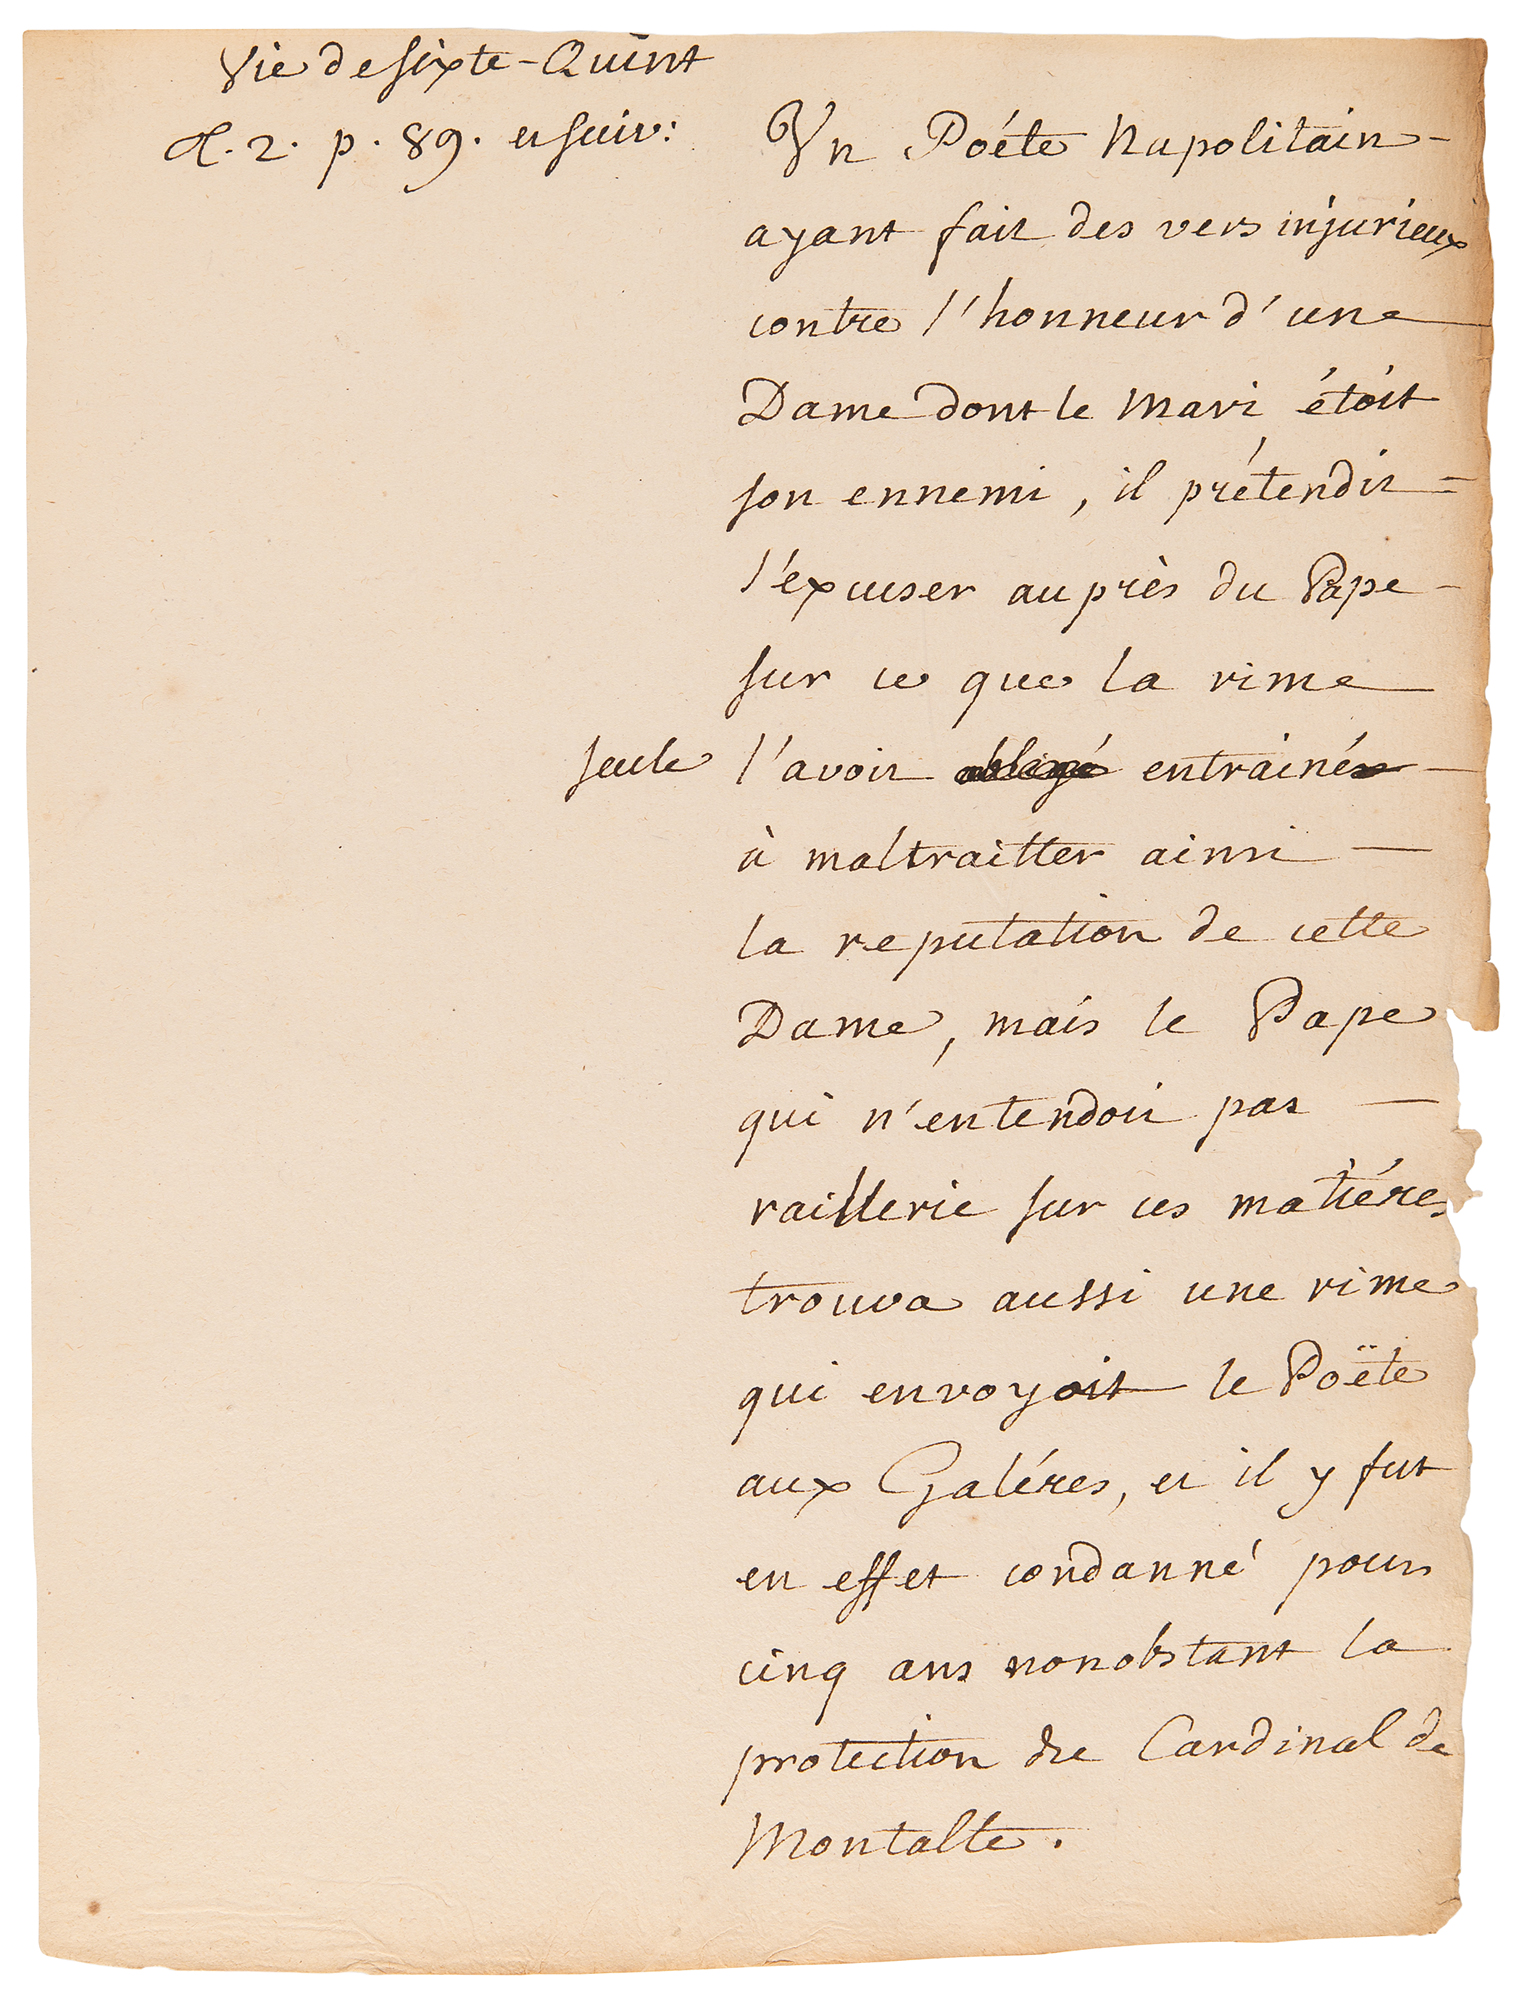 Vie de Sixte-Quint
T. 2. p. 89. et suiv:
Un Poéte Napolitain
ayant fait des vers injurieux
contre l'honneur d'une
Dame dont le Mari étoit
son ennemi, il prétendit
s'excuser auprès du Pape
sur ce que la rime
seule l'avoit obligé entrainée
à maltraitter ainsi
la reputation de cette
Dame, mais le Pape
qui n'entendoit pas
raillerie sur ces matiéres
trouva aussi une rime
qui envoyoit le Poëte
aux Galéres, et il y fut
en effet condanné pour
cinq ans nonobstant la
protection du Cardinal de
Montalte.